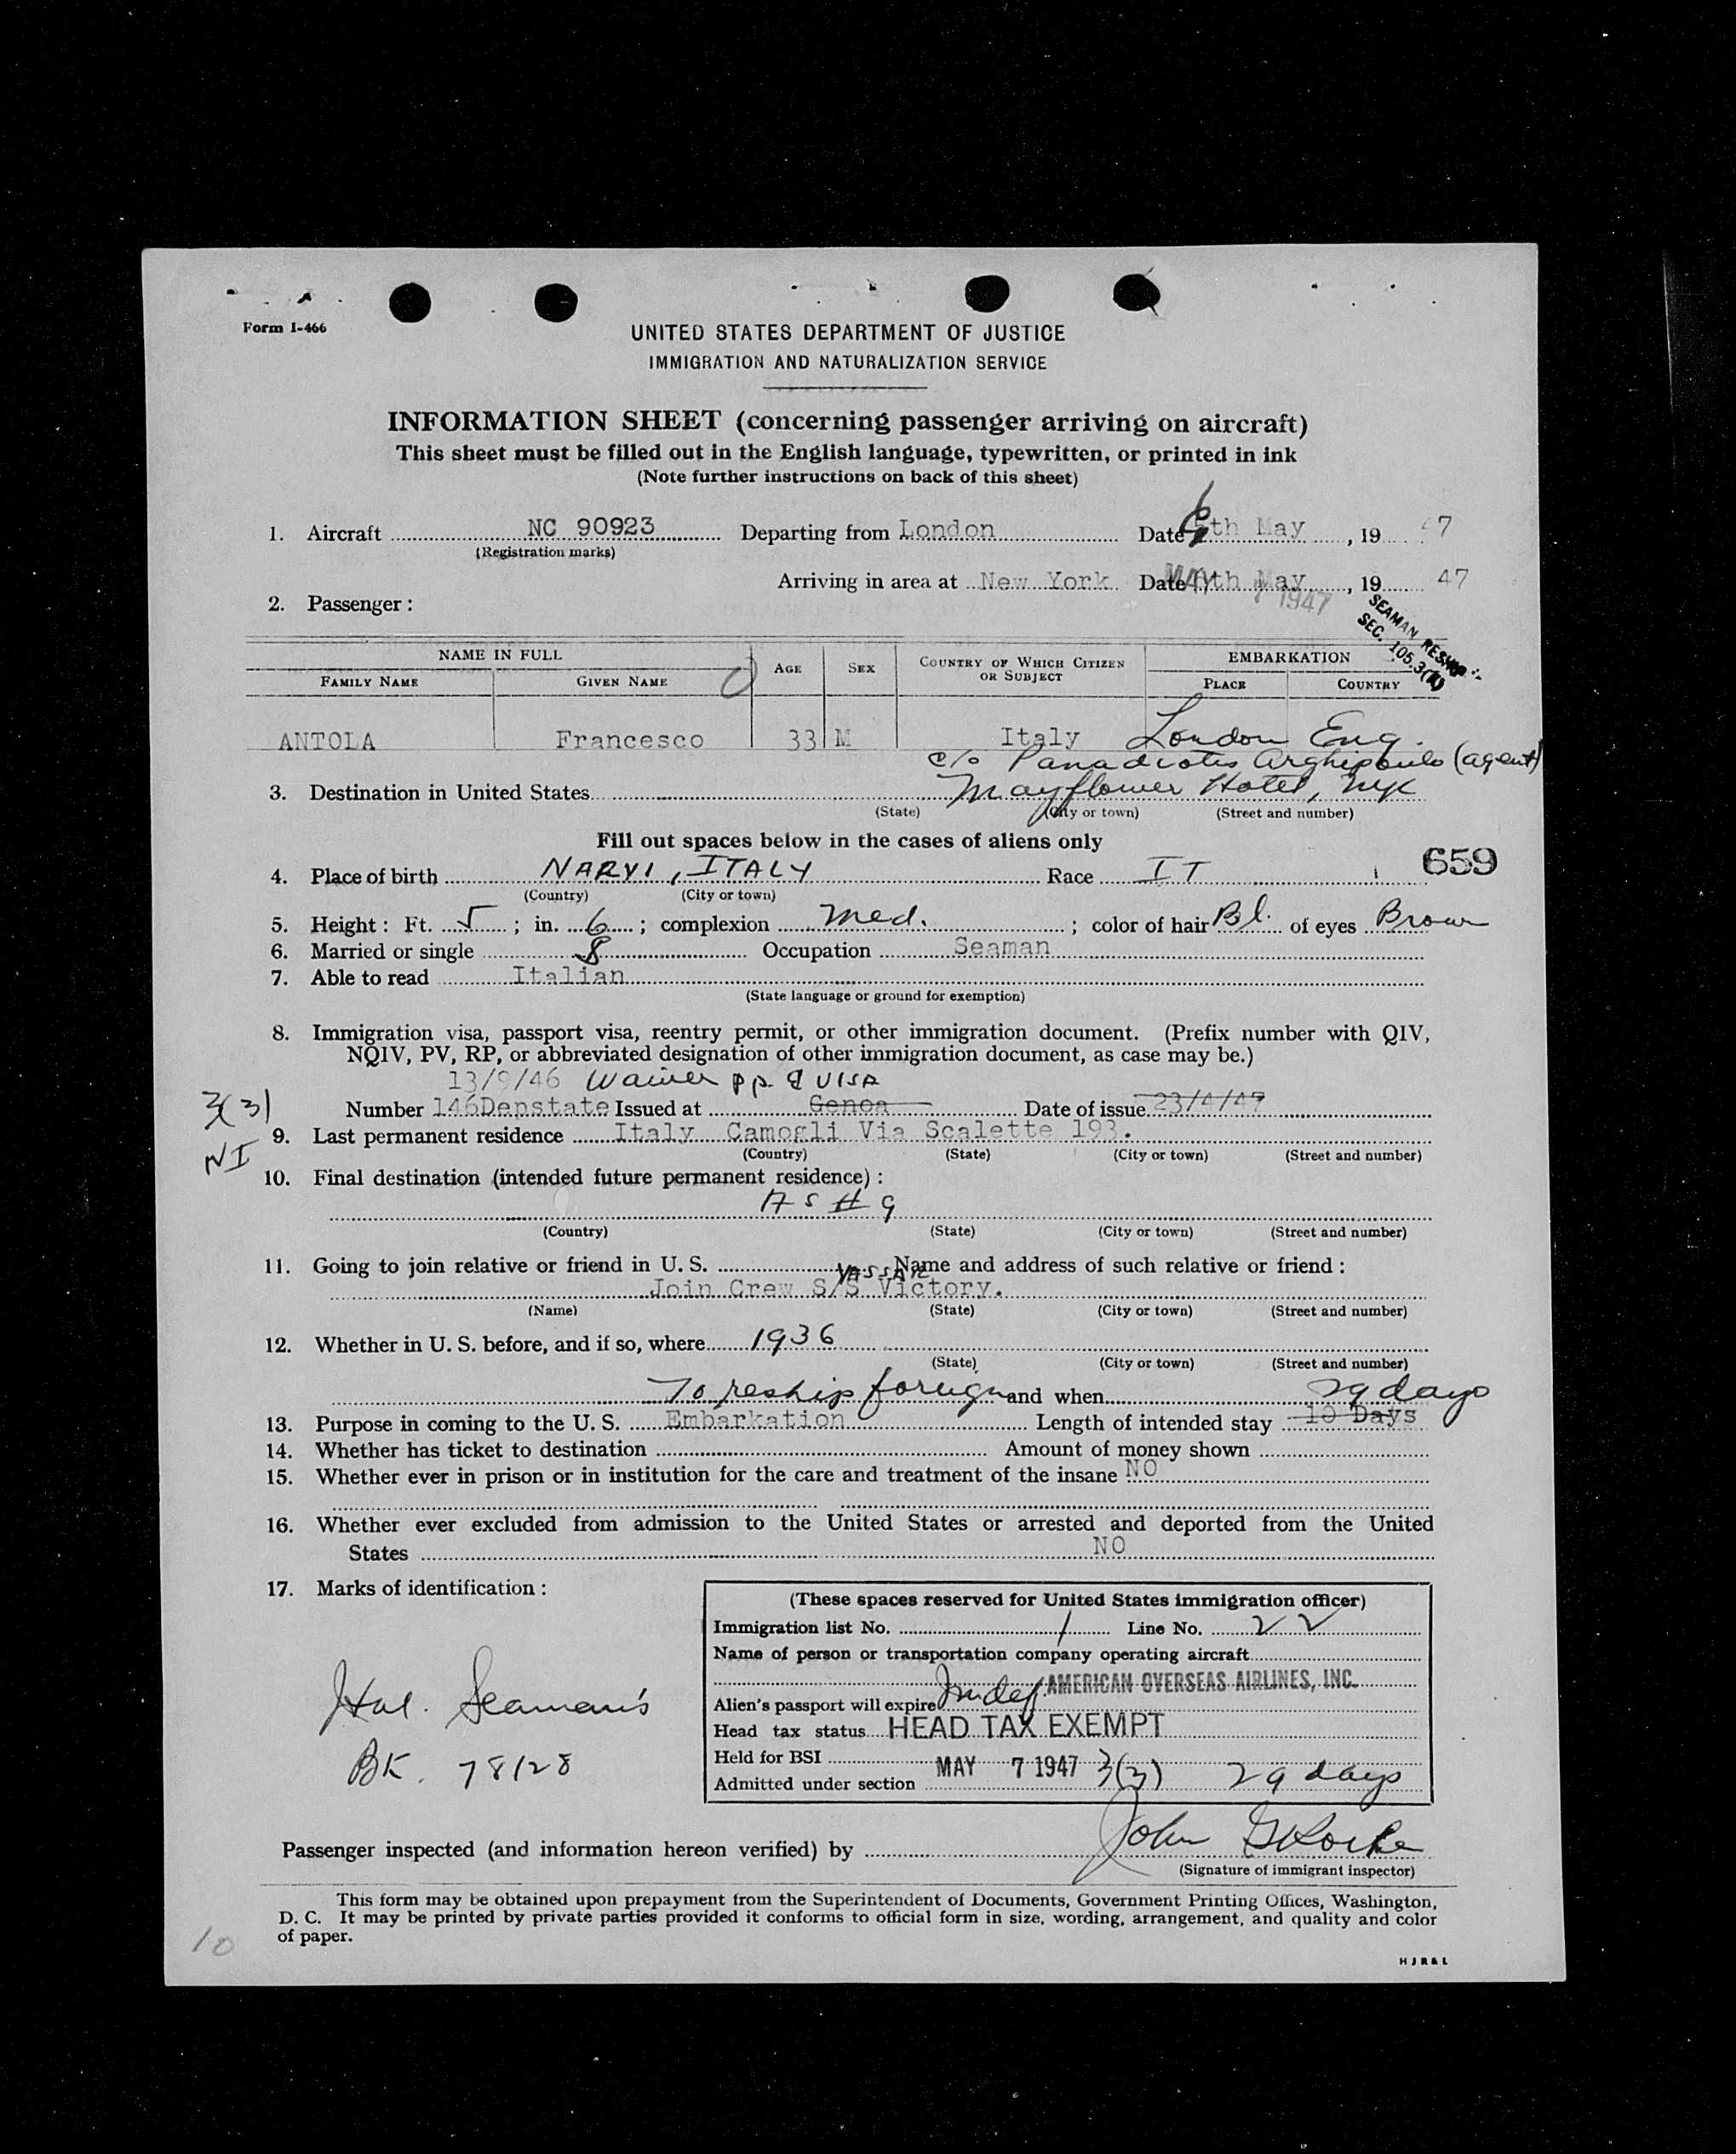 Form I-466
UNITED STATES DEPARTMENT OF JUSTICE
IMMIGRATION AND NATURALIZATION SERVICE
INFORMATION SHEET (concerning passenger arriving on aircraft)
This sheet must be filled out in the English language, typewritten, or printed in ink
(Note further instructions on back of this sheet)
1. Aircraft NC 90923 Departing from London Date 6th May, 19 47
(Registration marks)
Arriving in area at New York Date May, 19 47
MAY 7 1947
2. Passenger:
SEAMAN RESHIP
SEC. 105.3
NAME IN FULL AGE SEX COUNTRY OF WHICH CITIZEN OR SUBJECT EMBARKATION
FAMILY NAME GIVEN NAME PLACE COUNTRY
ANTOLA Francesco 33 M Italy London Eng.
c/o (agent)
3. Destination in United States Mayflower Hotel, NYC
(State) (City or town) (Street and number)
Fill out spaces below in the cases of aliens only
659
4. Place of birth NARVI, ITALY Race IT
(Country) (City or town)
5. Height: Ft. 5; in. 6; complexion Med.; color of hair Bl. of eyes Brown
6. Married or single S Occupation Seaman
7. Able to read Italian
(State language or ground for exemption)
8. Immigration visa, passport visa, reentry permit, or other immigration document. (Prefix number with QIV,
NQIV, PV, RP, or abbreviated designation of other immigration document, as case may be.)
13/9/46 Waiver pp & VISA
3(3) Number 146Depstate Issued at Genoa Date of issue 23/4/47
NI
9. Last permanent residence Italy Camogli Via Scalette 193.
(Country) (State) (City or town) (Street and number)
10. Final destination (intended future permanent residence):
AS # 9
(Country) (State) (City or town) (Street and number)
11. Going to join relative or friend in U. S. Name and address of such relative or friend:
VASSAR
Join Crew S/S Victory.
(Name) (State) (City or town) (Street and number)
12. Whether in U. S. before, and if so, where 1936
(State) (City or town) (Street and number)
To reship foreign and when 29 days
13. Purpose in coming to the U. S. Embarkation Length of intended stay 10 Days
14. Whether has ticket to destination Amount of money shown
15. Whether ever in prison or in institution for the care and treatment of the insane NO
16. Whether ever excluded from admission to the United States or arrested and deported from the United
States NO
17. Marks of identification:
Ital. Seaman's
BK. 78128
(These spaces reserved for United States immigration officer)
Immigration list No. 1 Line No. 22
Name of person or transportation company operating aircraft
AMERICAN OVERSEAS AIRLINES, INC.
Alien's passport will expire Indef.
Head tax status HEAD TAX EXEMPT
Held for BSI
Admitted under section MAY 7 1947 3(3) 29 days
Passenger inspected (and information hereon verified) by John
(Signature of immigrant inspector)
This form may be obtained upon prepayment from the Superintendent of Documents, Government Printing Offices, Washington,
D. C. It may be printed by private parties provided it conforms to official form in size, wording, arrangement, and quality and color
of paper.
10
H J R & L